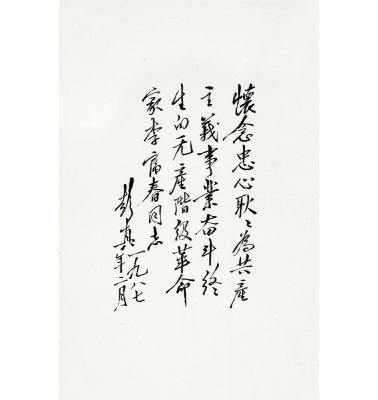 懷念忠心耿々為共產
主義事業奋斗終
生的无產階級革命
家李富春同志
彭真
一九八七
年二月